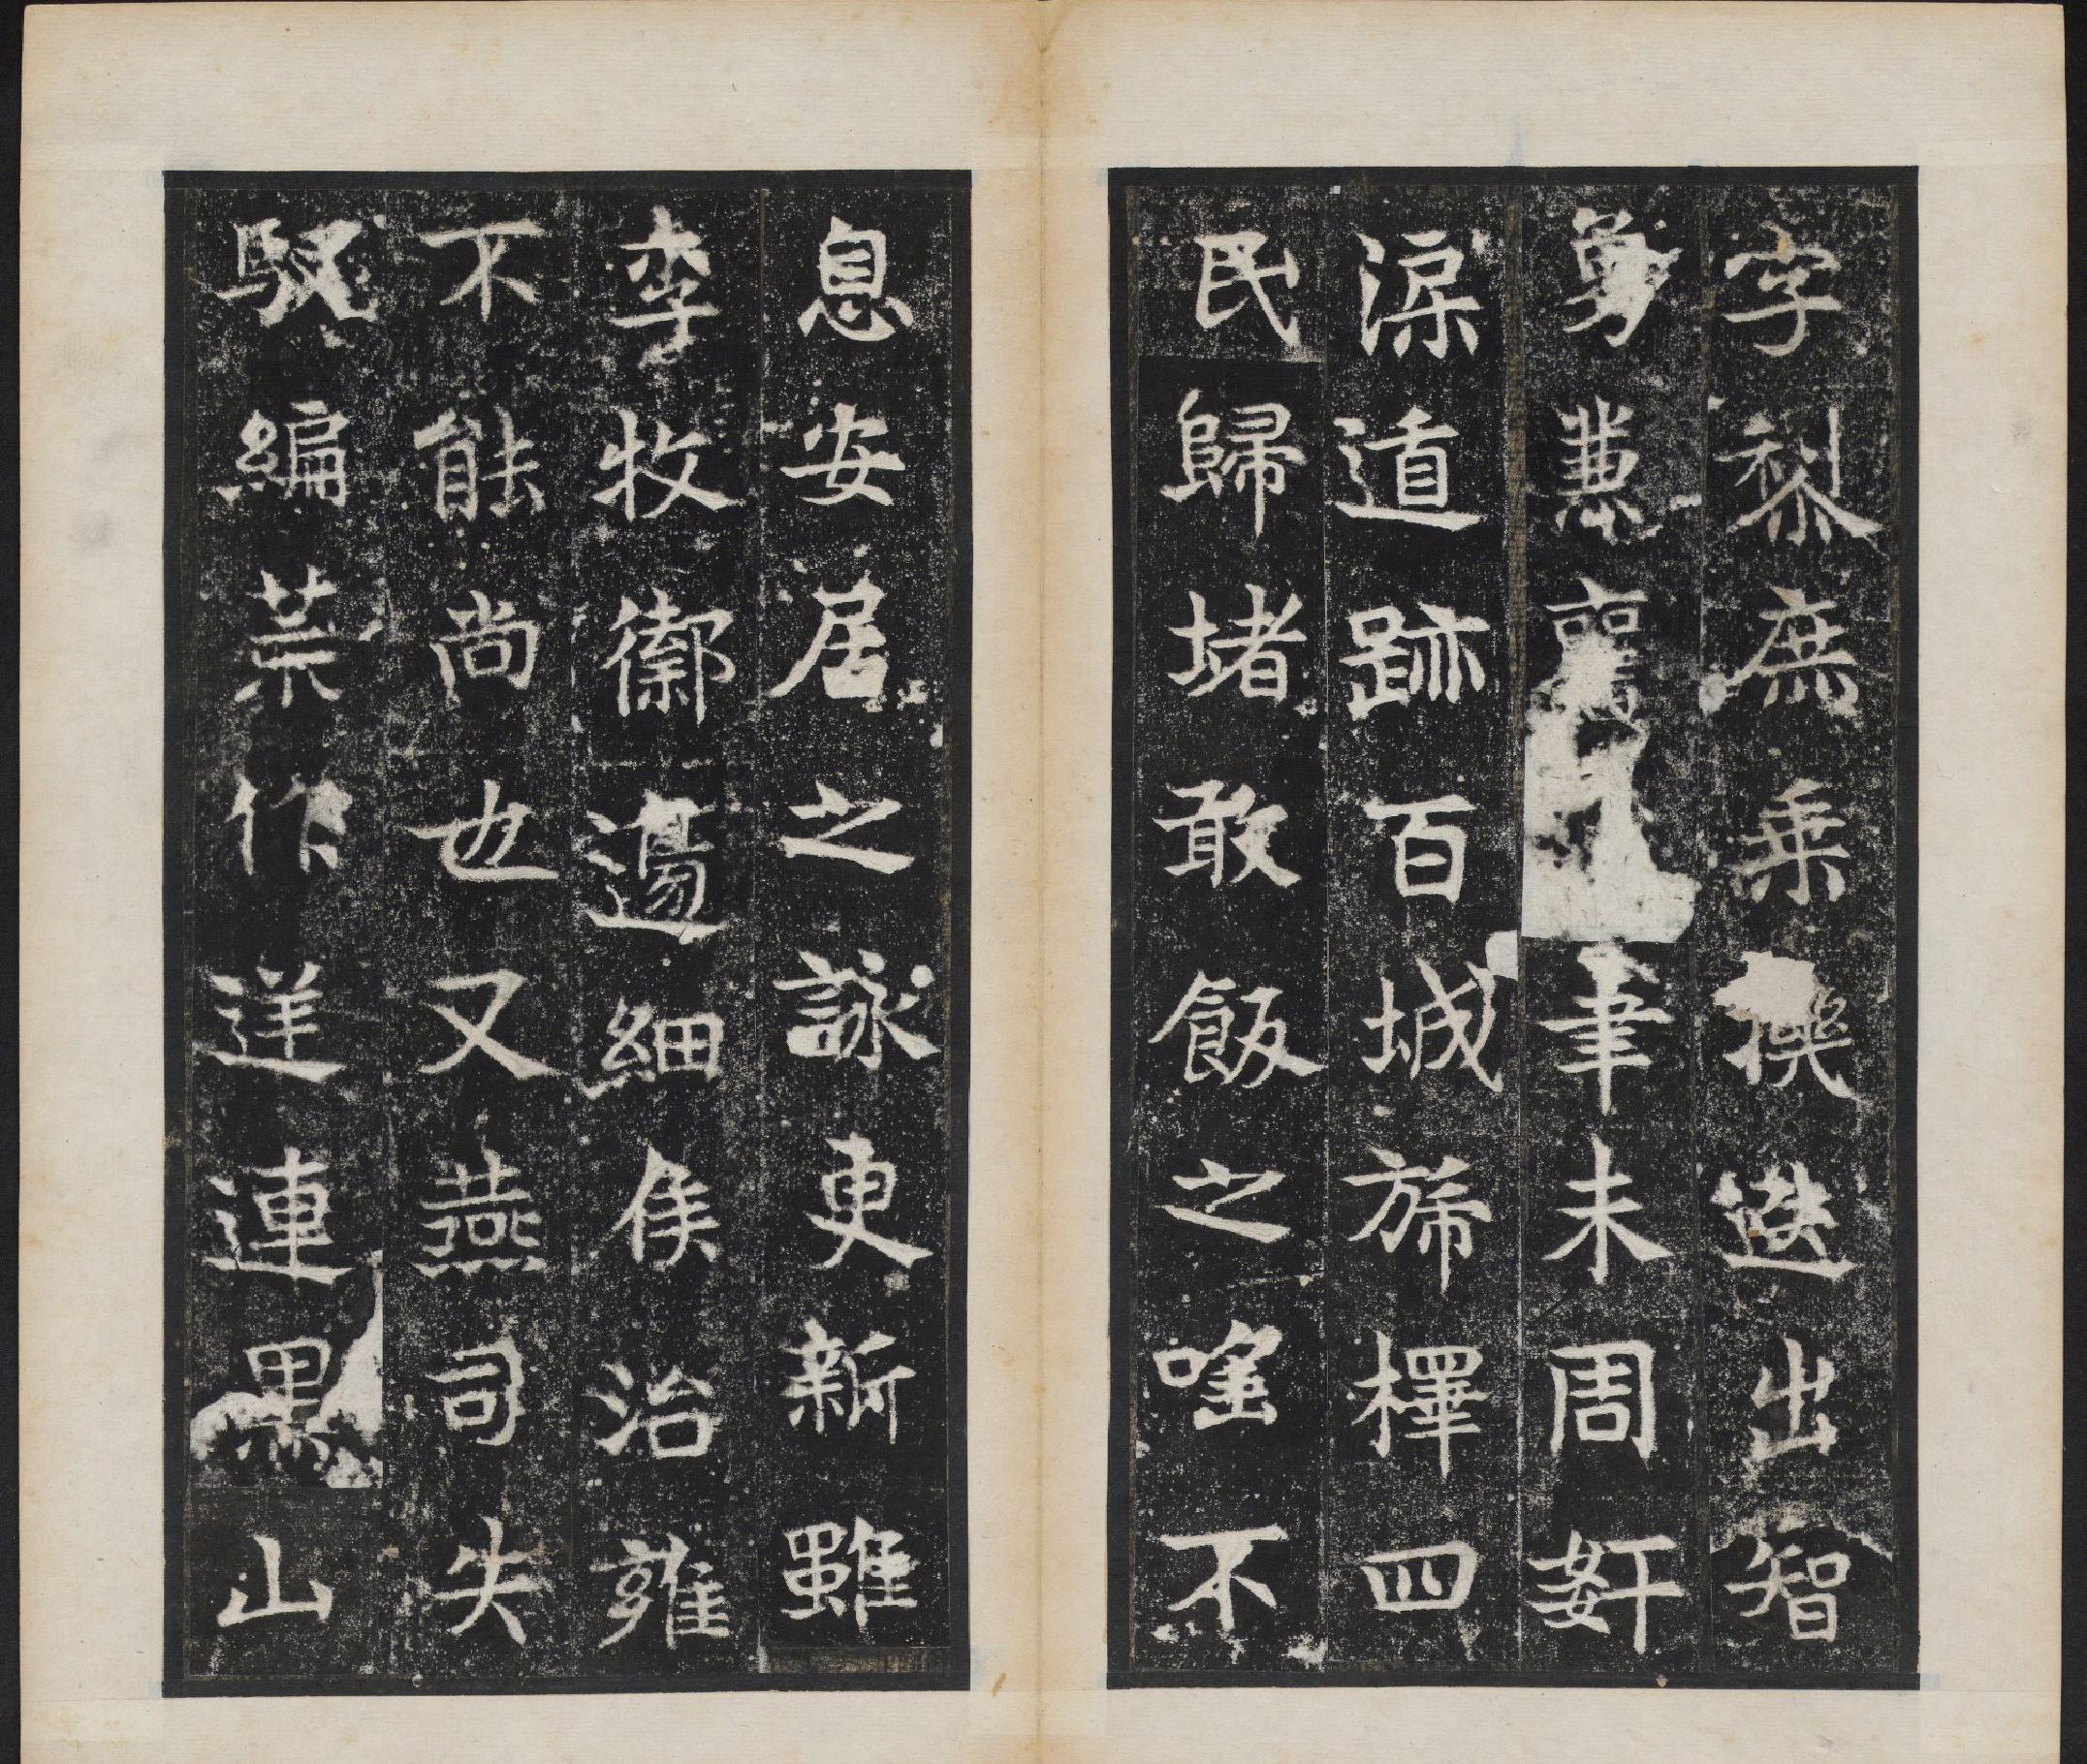 字黎庶乗機迭出智
勇兼筆未周奸
深道跡百城斾擇四
民歸堵敢飯之嗂不
息安居之詠更新雖
李牧禦邊細侯治雍
不能尚也又燕司失
馭編荒作逆連黑山